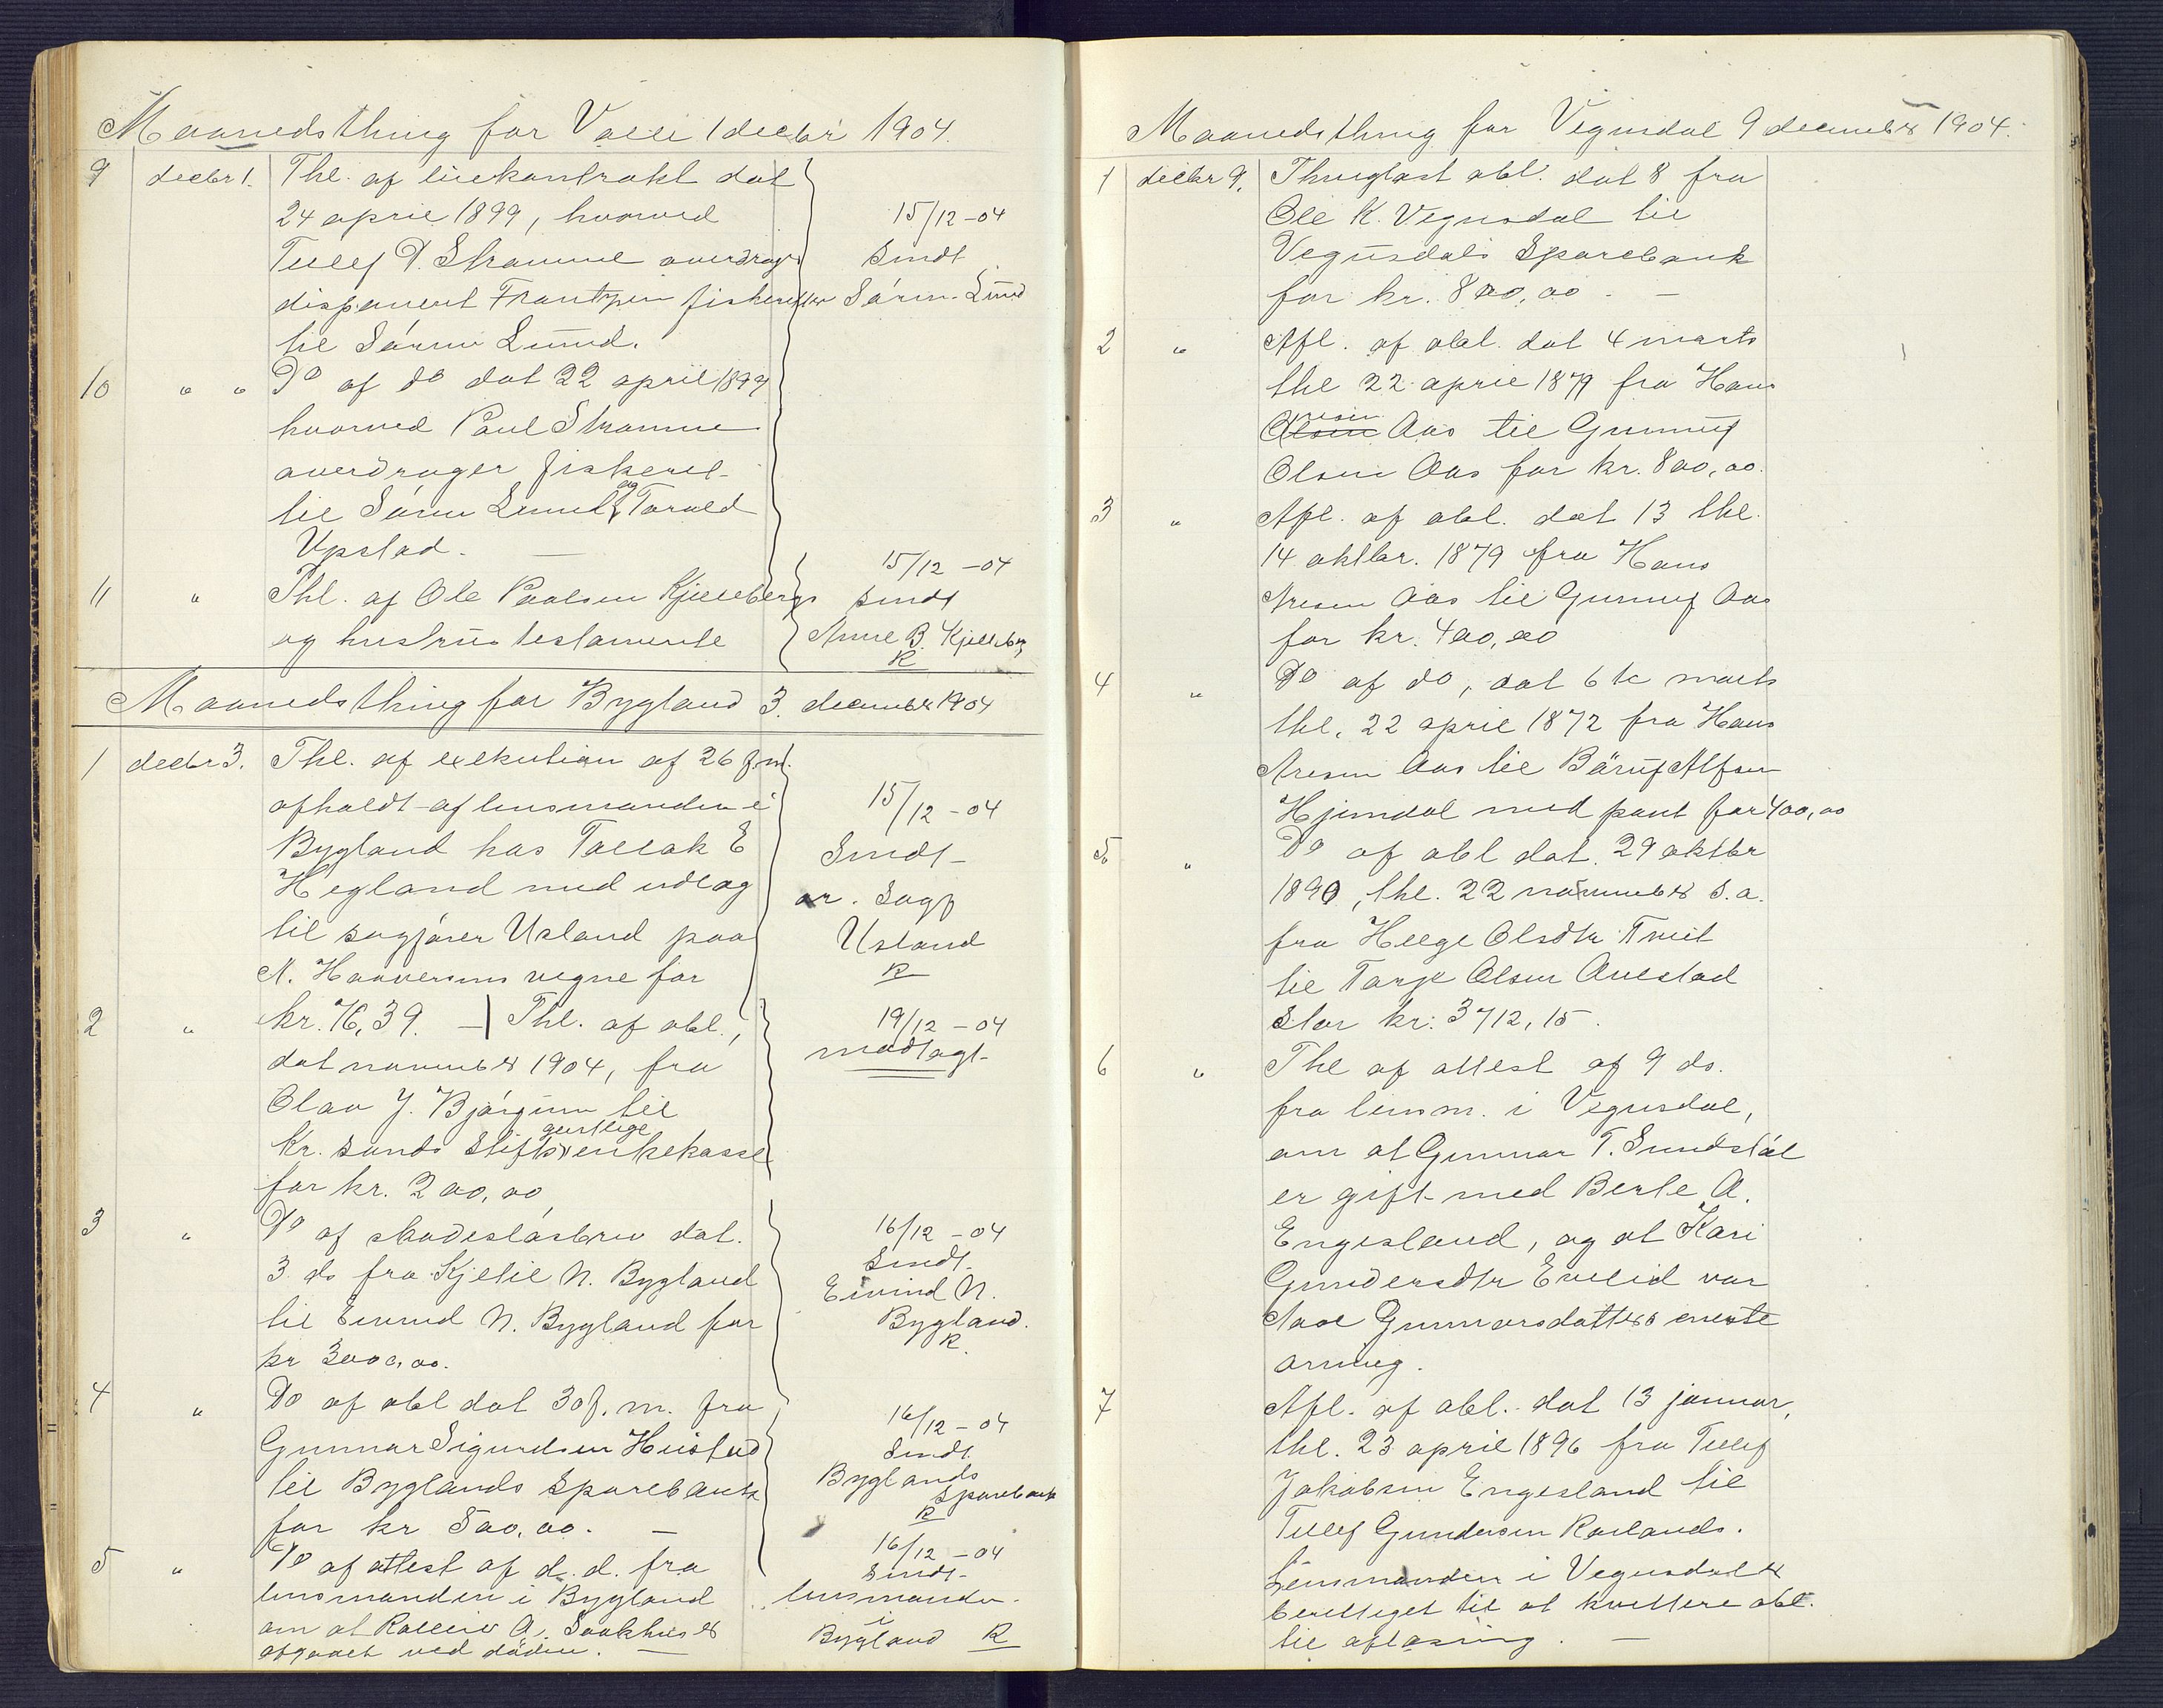 Maanedsthing for Valle 1 decbr 1904.
9 decbr 1. Thl. af leiekontrakt dat
24 april 1899, hvorved 15/12 -04
Tellef D. Straume overdrager Sendt
disponent Frantzen fiskeretten Søren Lund
til Søren Lund.
10 " " Do af do dat 22 april 1899
hvorved Paul Straume
overdrager fiskeret
til Søren Lund og Torvald
Upstad. —
15/12 -04
11 " Thl. af Ole Paulsen Kjelleberg Sendt
og hustrus testamente Anne B. Kjelleberg
R
Maanedsthing for Bygland 3. december 1904
1 decbr 3. Thl. af exekution af 26 f.m.
afholdt af lensmanden i 15/12 -04
Bygland hos Tallak E Sendt
Hegland med udlæg or. Sagf
til sagfører Usland paa Usland
N. Haaversens vegne for R
2 " kr. 76,39. — | Thl. af obl., 19/12 -04
dat november 1904, fra modtagt
Olav J. Bjørgum til
Kr. sands Stifts geistlige enkekasse
for kr. 200,00
3 " Do af skadesløsbrev dat. 16/12 -04
3 ds fra Kjetil N. Bygland Sendt
til Eivind N. Bygland for Eivind N. Bygland.
kr 3000,00. R.
4 " Do af obl dat 30 f. m. fra 16/12 -04
Gunnar Sigurdsen Heistad Sendt
til Byglands Sparebank Byglands Sparebank
for kr 500,00. — R
5 " Do af attest af d. d. fra 16/12 -04 Sendt
lensmanden i Bygland lensmanden i
om at Rolleiv A. Sookhus er Bygland R
afgaaet ved døden. —
Maanedsthing for Vegusdal 9 december 1904.
1 decbr 9. Thinglæst obl. dat 8 fra
Ole K. Vegusdal til
Vegusdals Sparebank
for kr. 800,00. —
2 " Afl. af obl. dat 4 marts
thl 22 april 1879 fra Hans
Aresen Aas til Gunnuf
Olsen Aas for kr. 800,00.
3 " Afl. af obl. dat 13 thl.
14 oktbr. 1879 fra Hans
Aresen Aas til Gunnuf Aas
for kr. 400,00
4 " Do af do, dat 6te marts
thl. 22 april 1872 fra Hans
Aresen Aas til Bäruf Alfsen
Hjemdal med pant for 400,00
5 " Do af obl dat. 29 oktbr
1890, thl. 22 november s.a.
fra Helge Olsdtr Tveit
til Tarje Olsen Aulestad
stor kr: 3712,15.
6 " Thl af attest af 9 ds.
fra lensm. i Vegusdal,
om at Gunnar T. Sundstøl
er gift med Berte A.
Engesland, og at Kari
Gundersdtr Evelid var
Aase Gunnarsdatters eneste
arving.
7 Afl. af obl. dat 13 januar,
thl. 23 april 1896 fra Tellef
Jakobsen Engesland til
Tellef Gundersen Røilands.
Lensmanden i Vegusdal er
berettiget til at kvittere obl.
til aflæsning. —